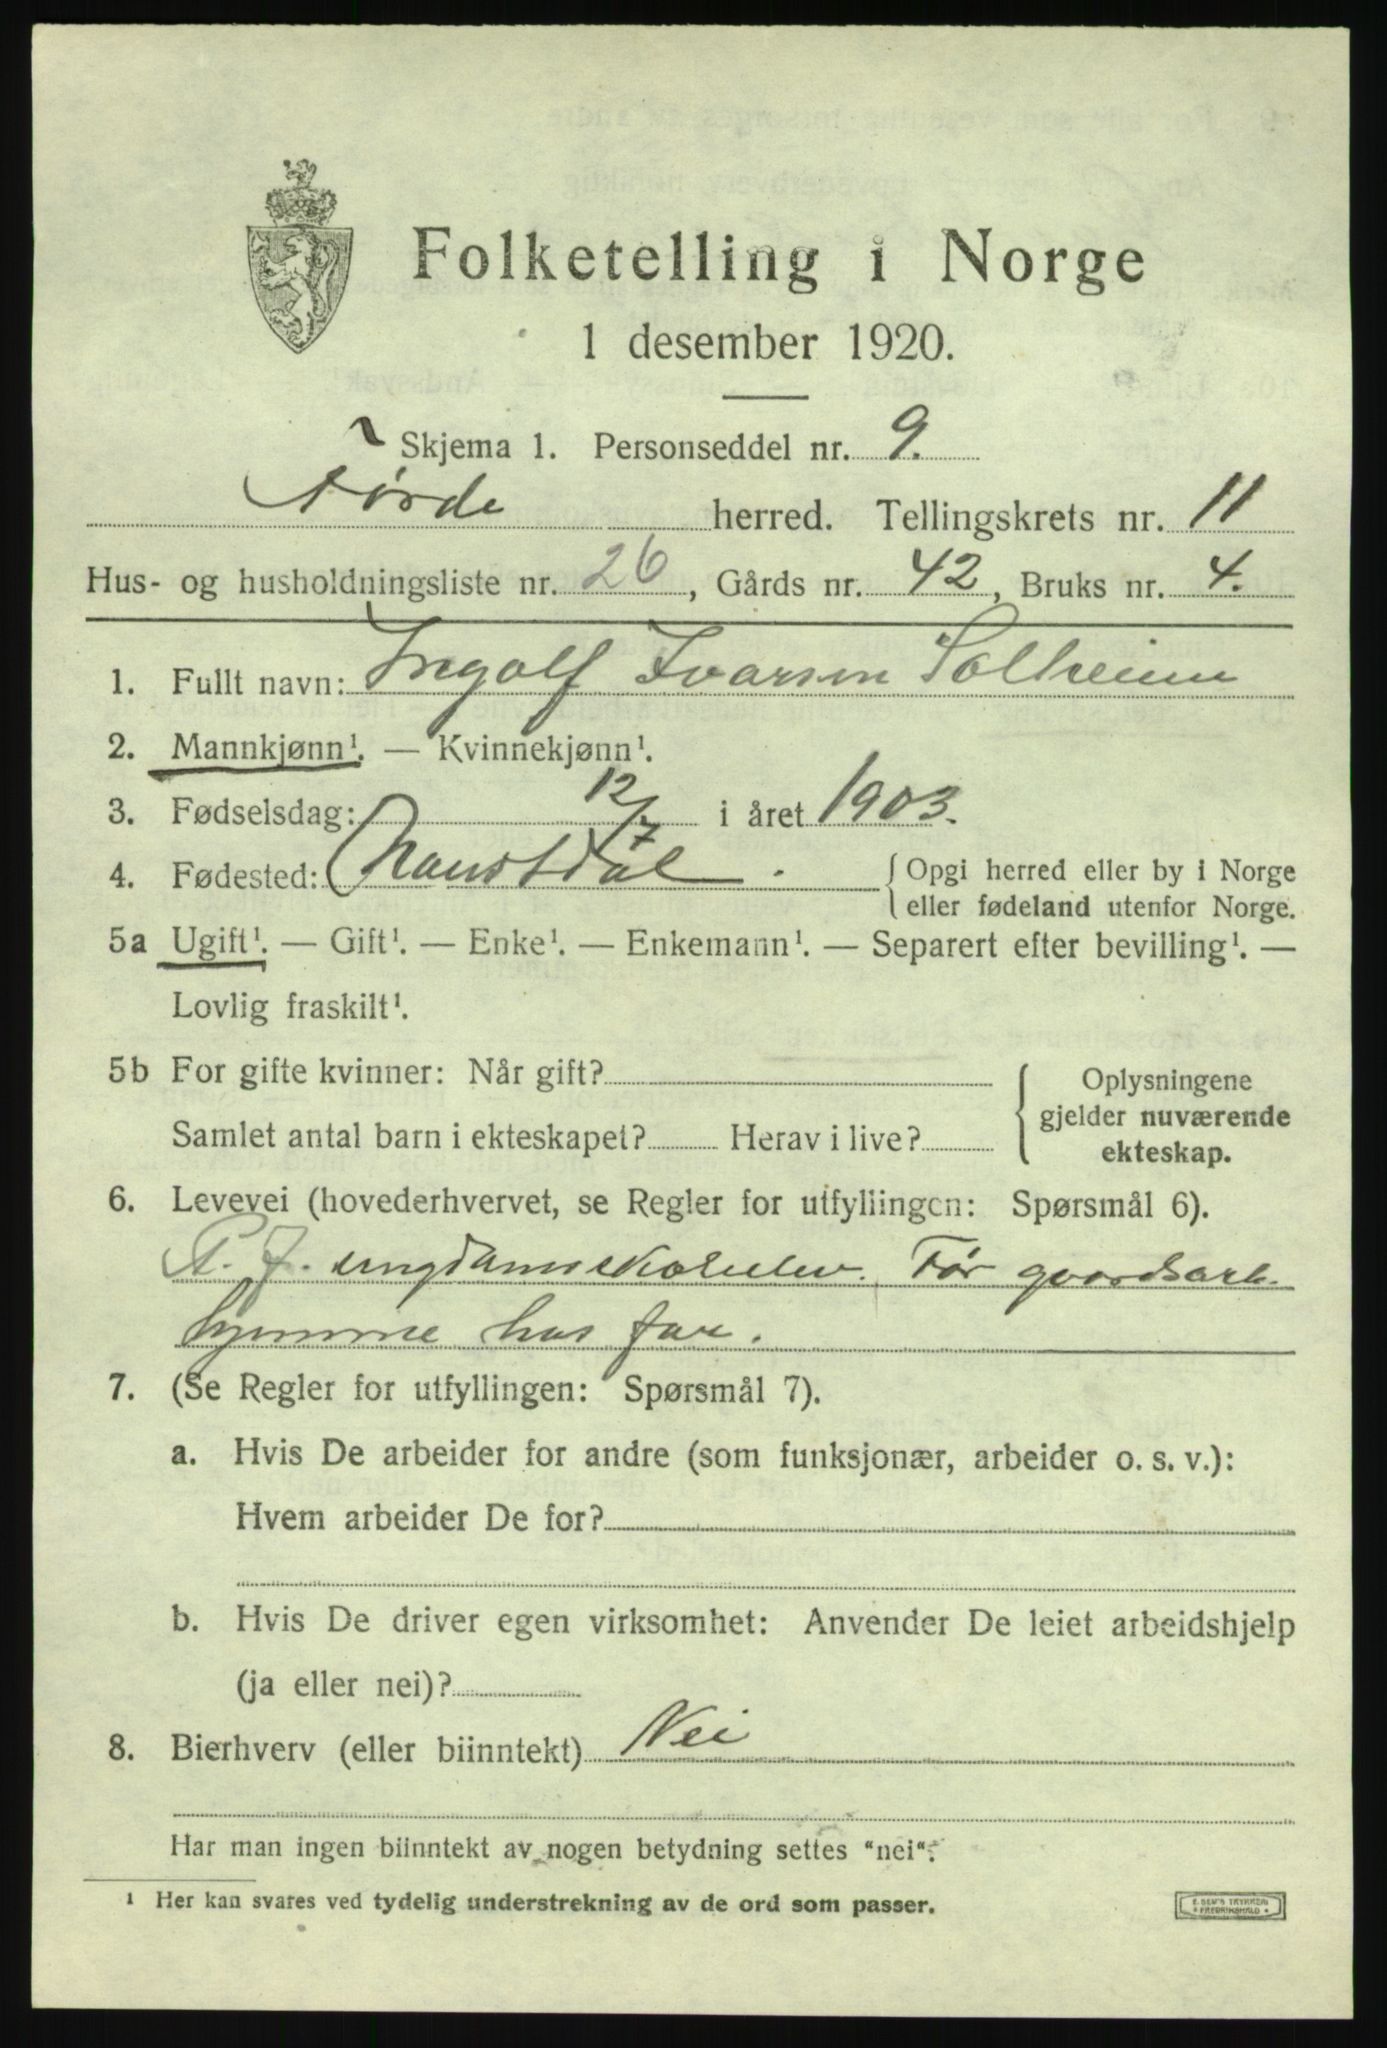 Folketelling i Norge
1 desember 1920.
Skjema 1. Personseddel nr. 9.
Førde herred. Tellingskrets nr. 11
Hus- og husholdningsliste nr. 26, Gårds nr. 42, Bruks nr. 4.
1. Fullt navn: Ingolf Ivarsen Solheim
2. Mannkjønn¹. — Kvinnekjønn¹.
3. Fødselsdag: 12/7 i året 1903.
4. Fødested: Naustdal. {Opgi herred eller by i Norge
eller fødeland utenfor Norge.
5a Ugift¹. — Gift¹. — Enke¹. — Enkemann¹. — Separert efter bevilling¹. —
Lovlig fraskilt¹.
5b For gifte kvinner: Når gift?
Samlet antal barn i ekteskapet? Herav i live?
{Oplysningene
gjelder nuværende
ekteskap.
6. Levevei (hovederhvervet, se Regler for utfyllingen: Spørsmål 6).
P. t. ungdomsskoleelev. Før gaardsarb.
hjemme hos far.
7. (Se Regler for utfyllingen: Spørsmål 7).
a. Hvis De arbeider for andre (som funksjonær, arbeider o. s. v.):
Hvem arbeider De for?
b. Hvis De driver egen virksomhet: Anvender De leiet arbeidshjelp
(ja eller nei)?
8. Bierhverv (eller biinntekt) Nei
Har man ingen biinntekt av nogen betydning settes "nei".
¹ Her kan svares ved tydelig understrekning av de ord som passer.
E. SEM'S TRYKKERI
FREDRIKSHALD